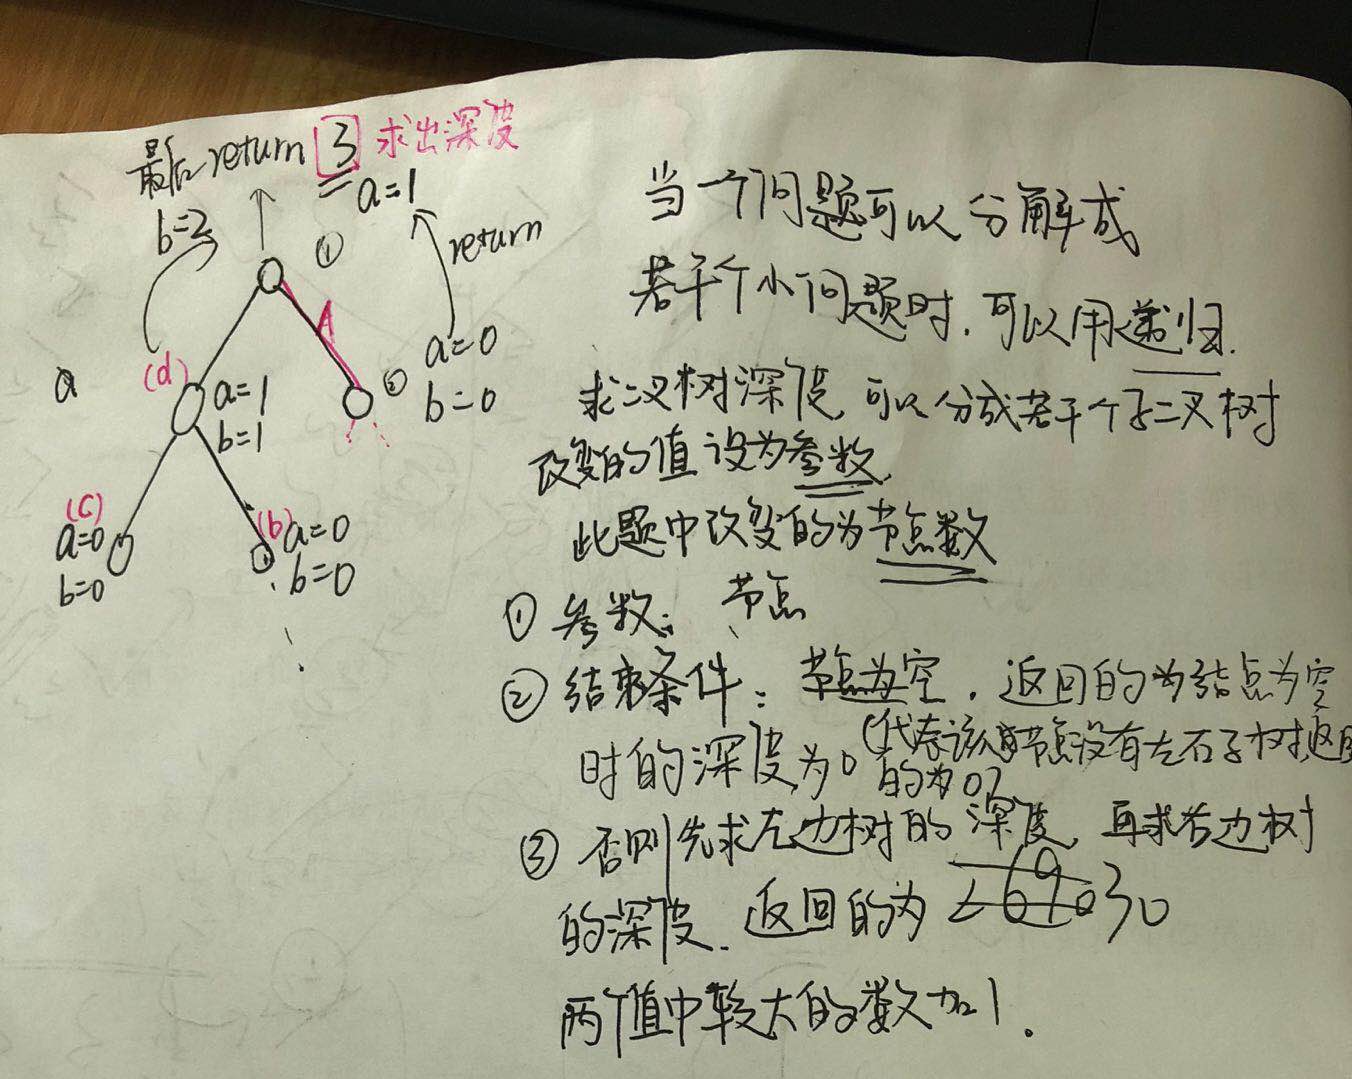 最后return 3 求出深度
b=2
a=1
①
return
a
(d)
a=1
b=1
②
a=0
b=0
(c)
a=0
b=0
(b)
a=0
b=0
当一个问题可以分解成
若干个小问题时,可以用递归.
求二叉树深度,可以分成若干个子二叉树
改变的值设为参数,
此题中改变的为节点数
① 参数: 节点
② 结束条件: 节点为空, 返回的为结点为空
时的深度为0 (代表该节点没有左右子树,返回
的为0)
③ 否则先求左边树的深度,再求右边树
的深度. 返回的为
两个值中较大的数加1.